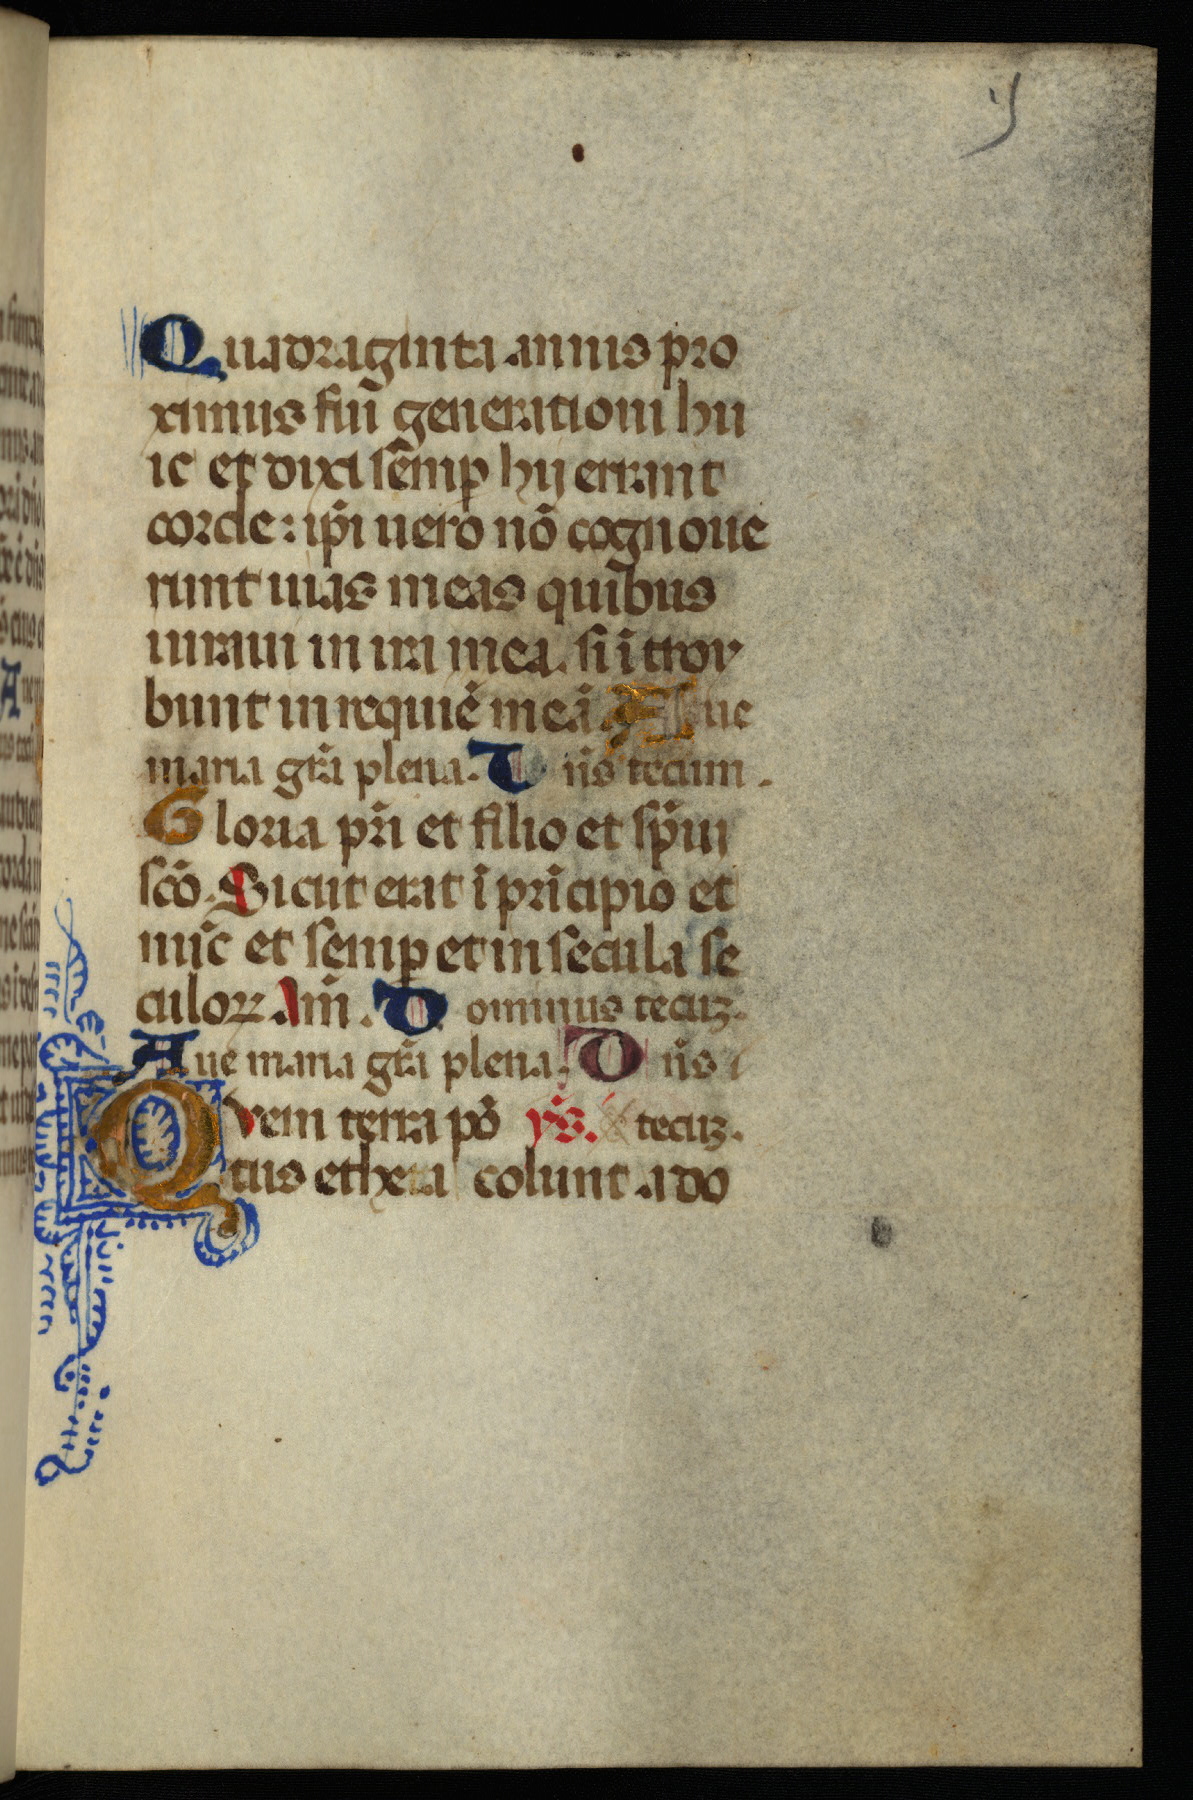 Quadraginta annis pro
ximus fui generationi hu
ic et dixi semp̱ hij errant
corde: ip̃i uero nõ cognoue
runt uias meas quibus
iuraui in ira mea. si ĩtroy
bunt in requiẽ meã. Aue
maria gr̃a plena. Dñs tecum.
Gloria pr̃i et filio et sp̃iui
scõ. Sicut erat ĩ prĩcipio et
nũc et semp̱ et in secula se
culoꝝ. Am̃. Dominus tecuꝫ.
Aue maria gr̃a plena. Dñs
Quem terra põ yp̃s. tecuꝫ.
tus ethera colunt ado